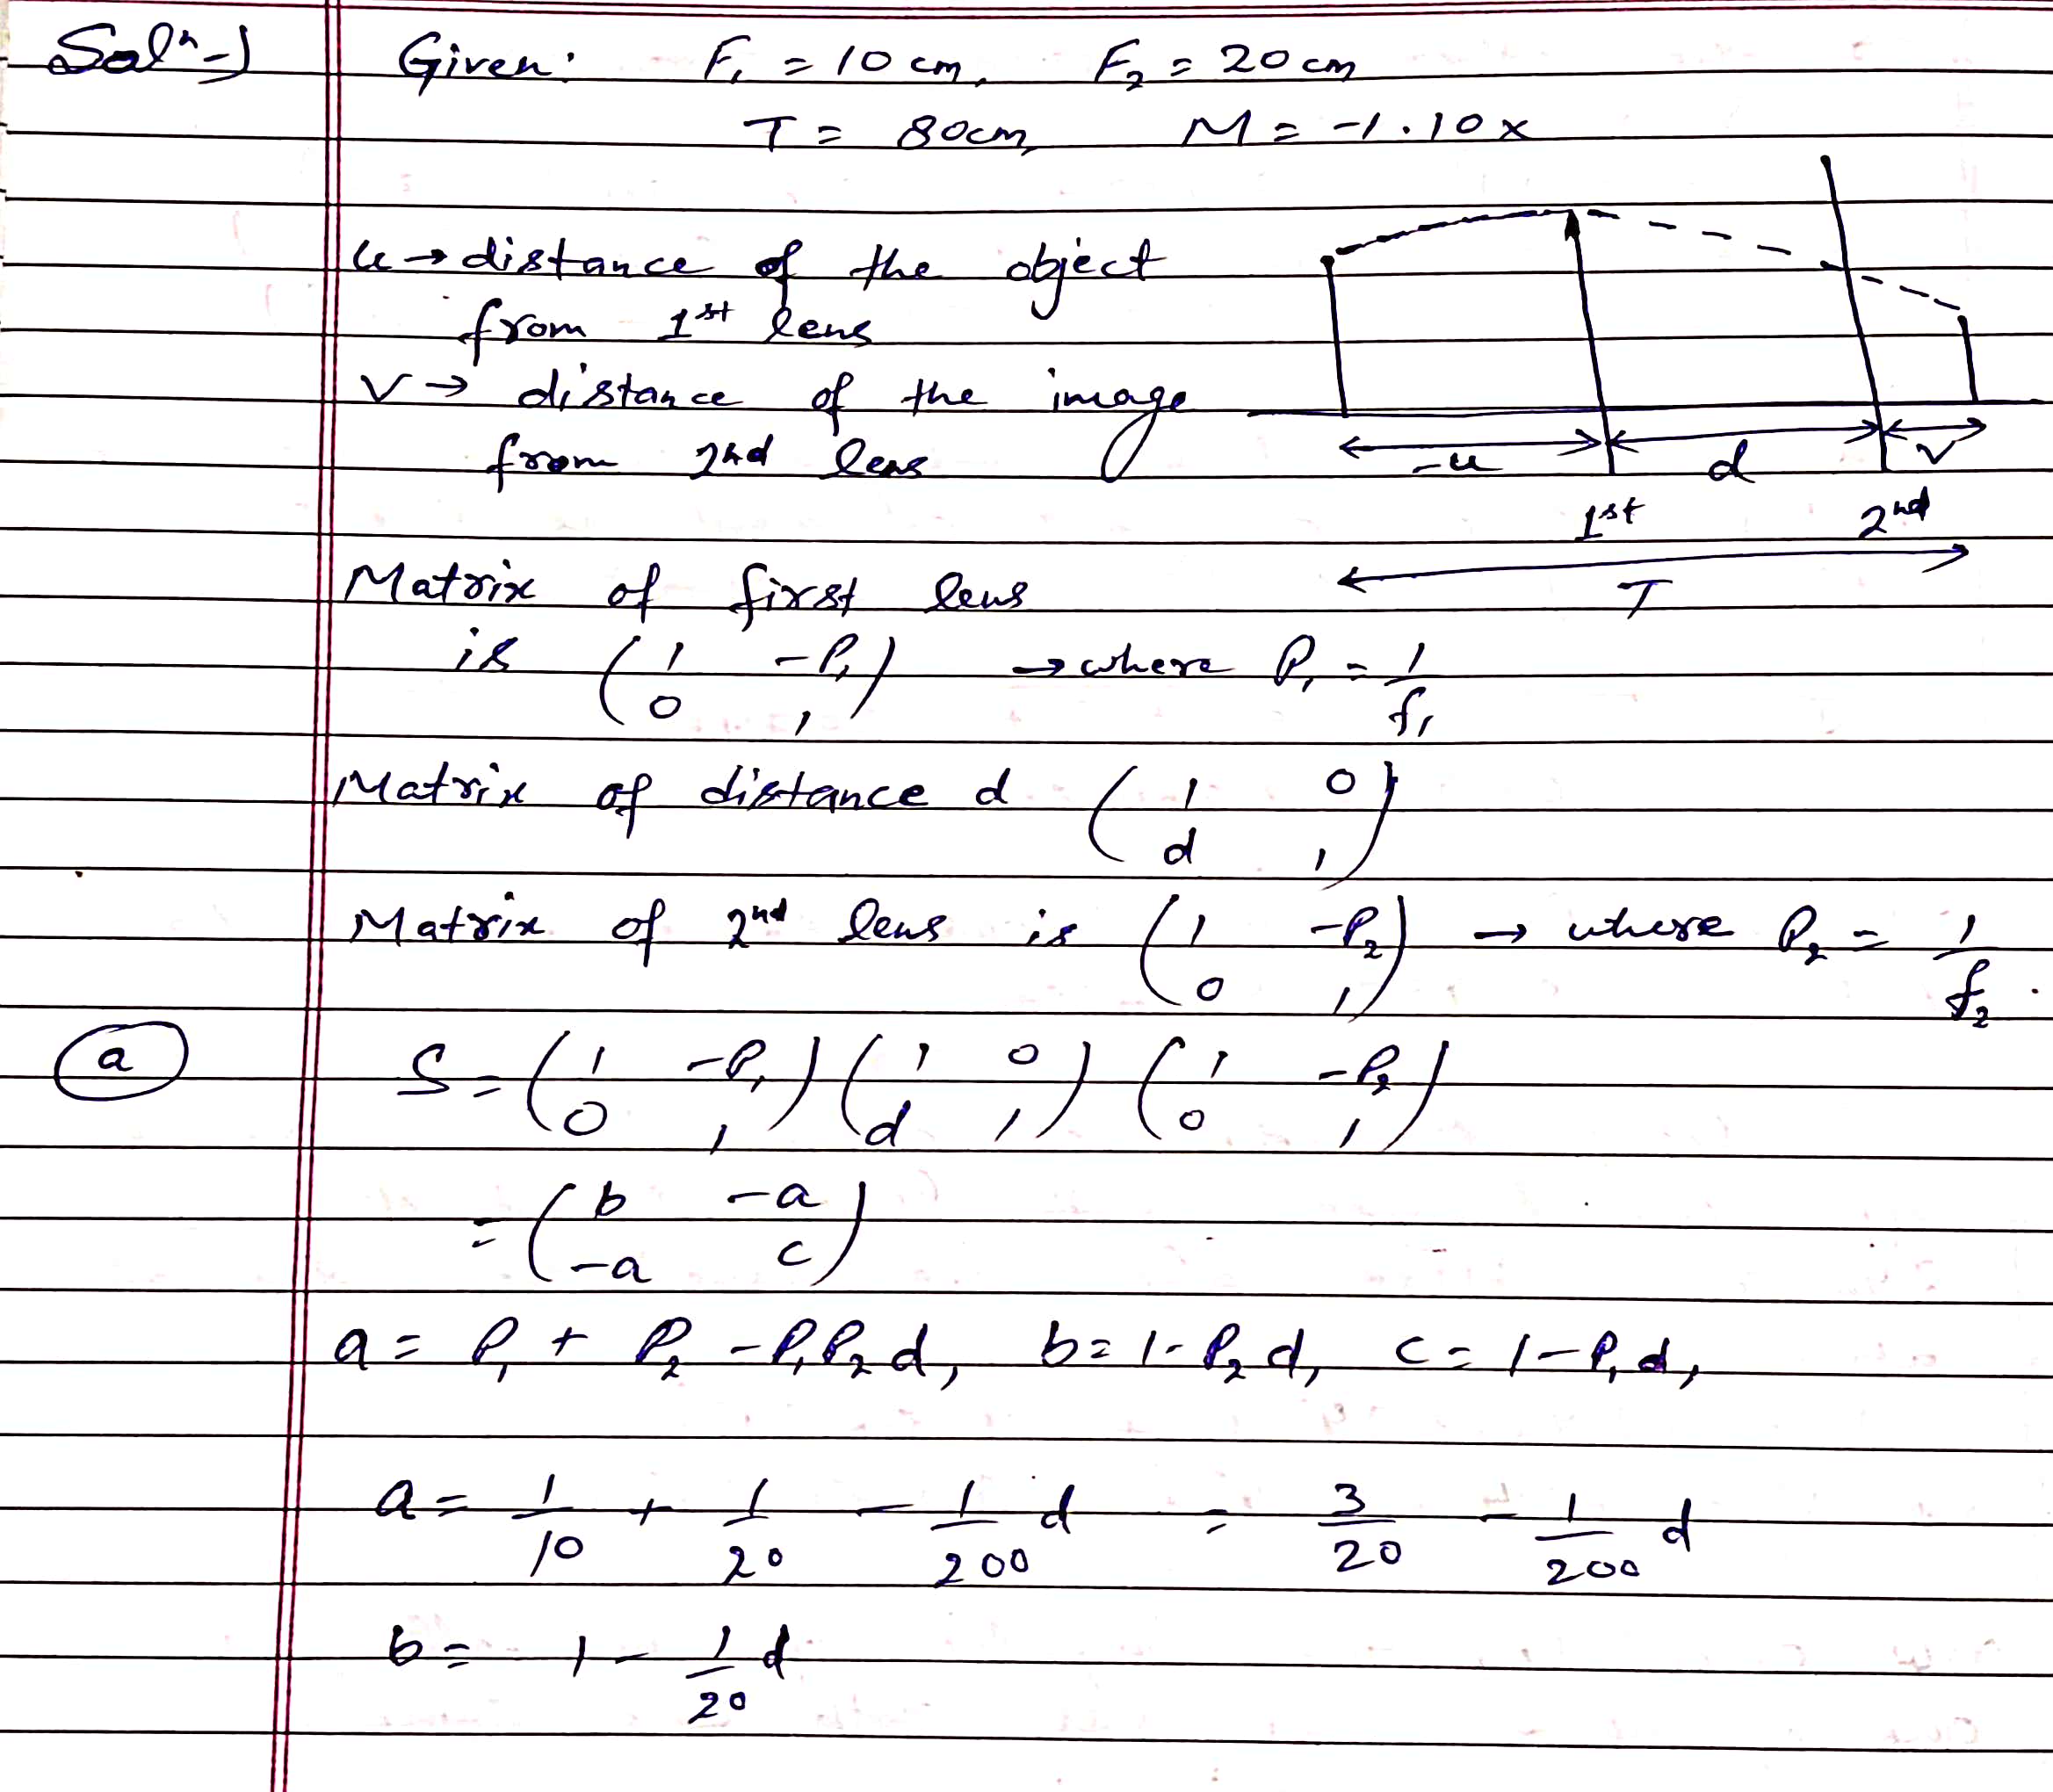 Solⁿ-) Given: F₁ = 10 cm, F₂ = 20 cm
T = 80cm, M = -1.10x
u → distance of the object
from 1st lens
v → distance of the image
from 2nd lens
-u d v
1st 2nd
T
Matrix of first lens
is (1 -P₁ / 0 1) → where P₁ = 1/f₁
Matrix of distance d (1 0 / d 1)
Matrix of 2nd lens is (1 -P₂ / 0 1) → where P₂ = 1/f₂.
(a) S = (1 -P₁ / 0 1) (1 0 / d 1) (1 -P₂ / 0 1)
= (b -a / -a c)
a = P₁ + P₂ - P₁P₂d, b = 1-P₂d, c = 1-P₁d,
a = 1/10 + 1/20 - 1/200 d = 3/20 - 1/200 d
b = 1 - 1/20 d